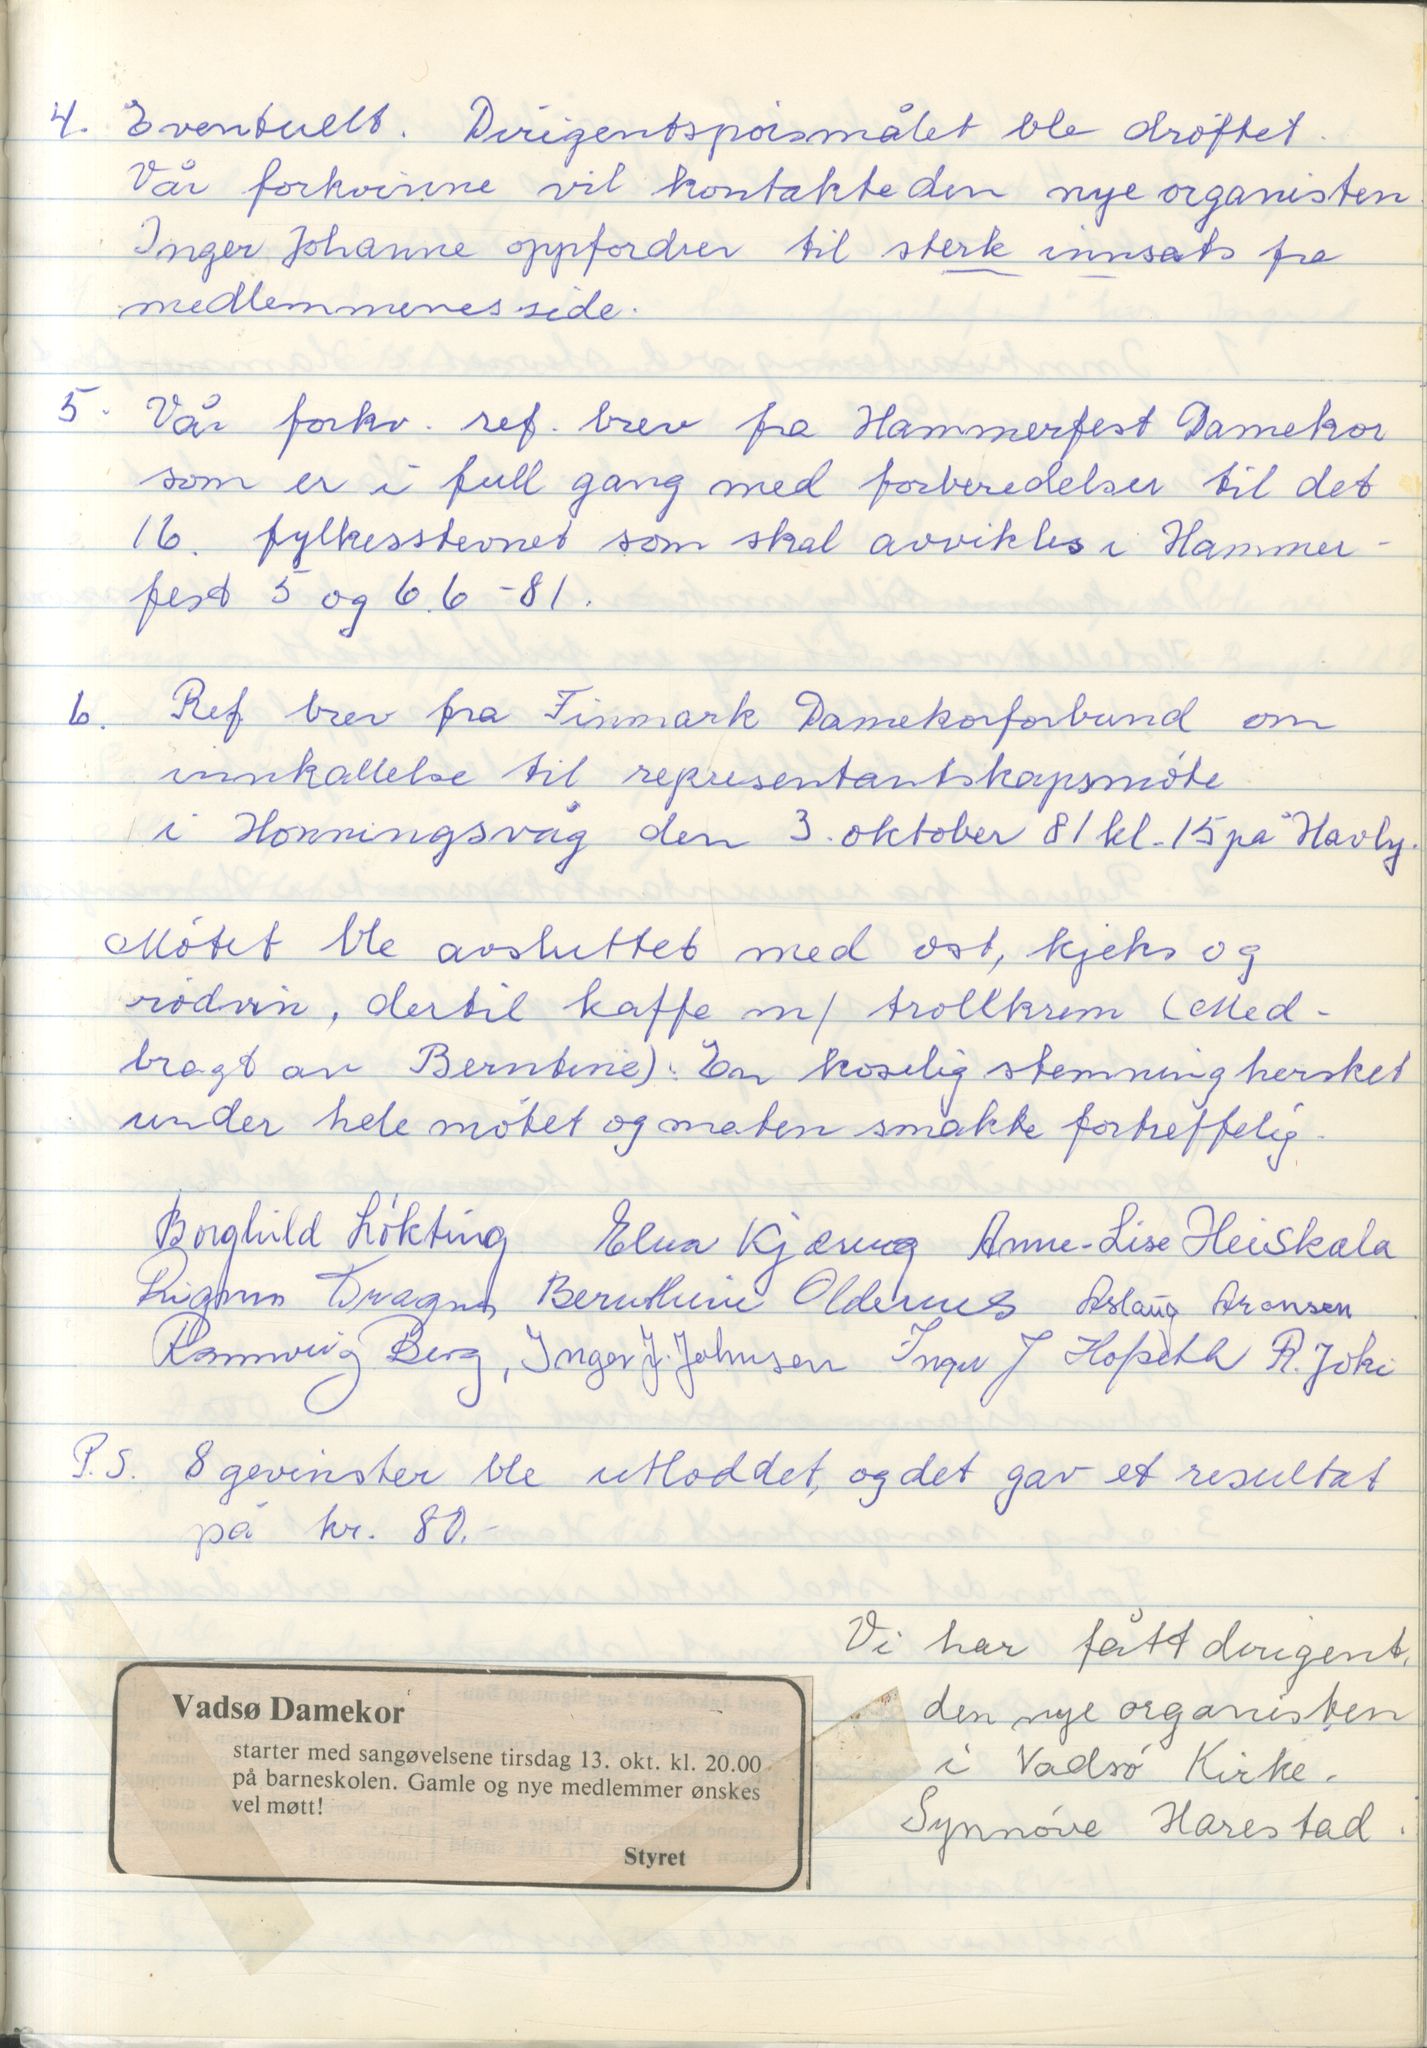 4. Eventuelt. Dirigentspørsmålet ble drøftet.
Vår forkvinne vil kontakte den nye organisten.
Inger Johanne oppfordrer til sterk innsats fra
medlemmenes side.
5. Vår forkv. ref. brev fra Hammerfest Damekor
som er i full gang med forberedelser til det
16. fylkesstevnet som skal avvikles i Hammer-
fest 5 og 6.6 -81.
6. Ref brev fra Finmark Damekorforbund om
innkallelse til representantskapsmøte
i Honningsvåg den 3. oktober 81 kl. 15 på Havly.
Møtet ble avsluttet med ost, kjeks og
rødvin, dertil kaffe m/ trollkrem (Med-
bragt av Berntine). En koselig stemning hersket
under hele møtet og maten smakte fortreffelig.
Borghild Løkting Elna Kjæreng Anne-Lise Heiskala
Rigmor Dragnes Bernthine Oldernes Aslaug Aronsen
Rannveig Berg, Inger J. Johnsen Inger J Hopseth R. Joki
P.S. 8 gevinster ble utloddet, og det gav et resultat
på kr. 80.-
Vi har fått dirigent,
den nye organisten
i Vadsø Kirke.
Synnøve Harestad.
Vadsø Damekor
starter med sangøvelsene tirsdag 13. okt. kl. 20.00
på barneskolen. Gamle og nye medlemmer ønskes
vel møtt!
Styret